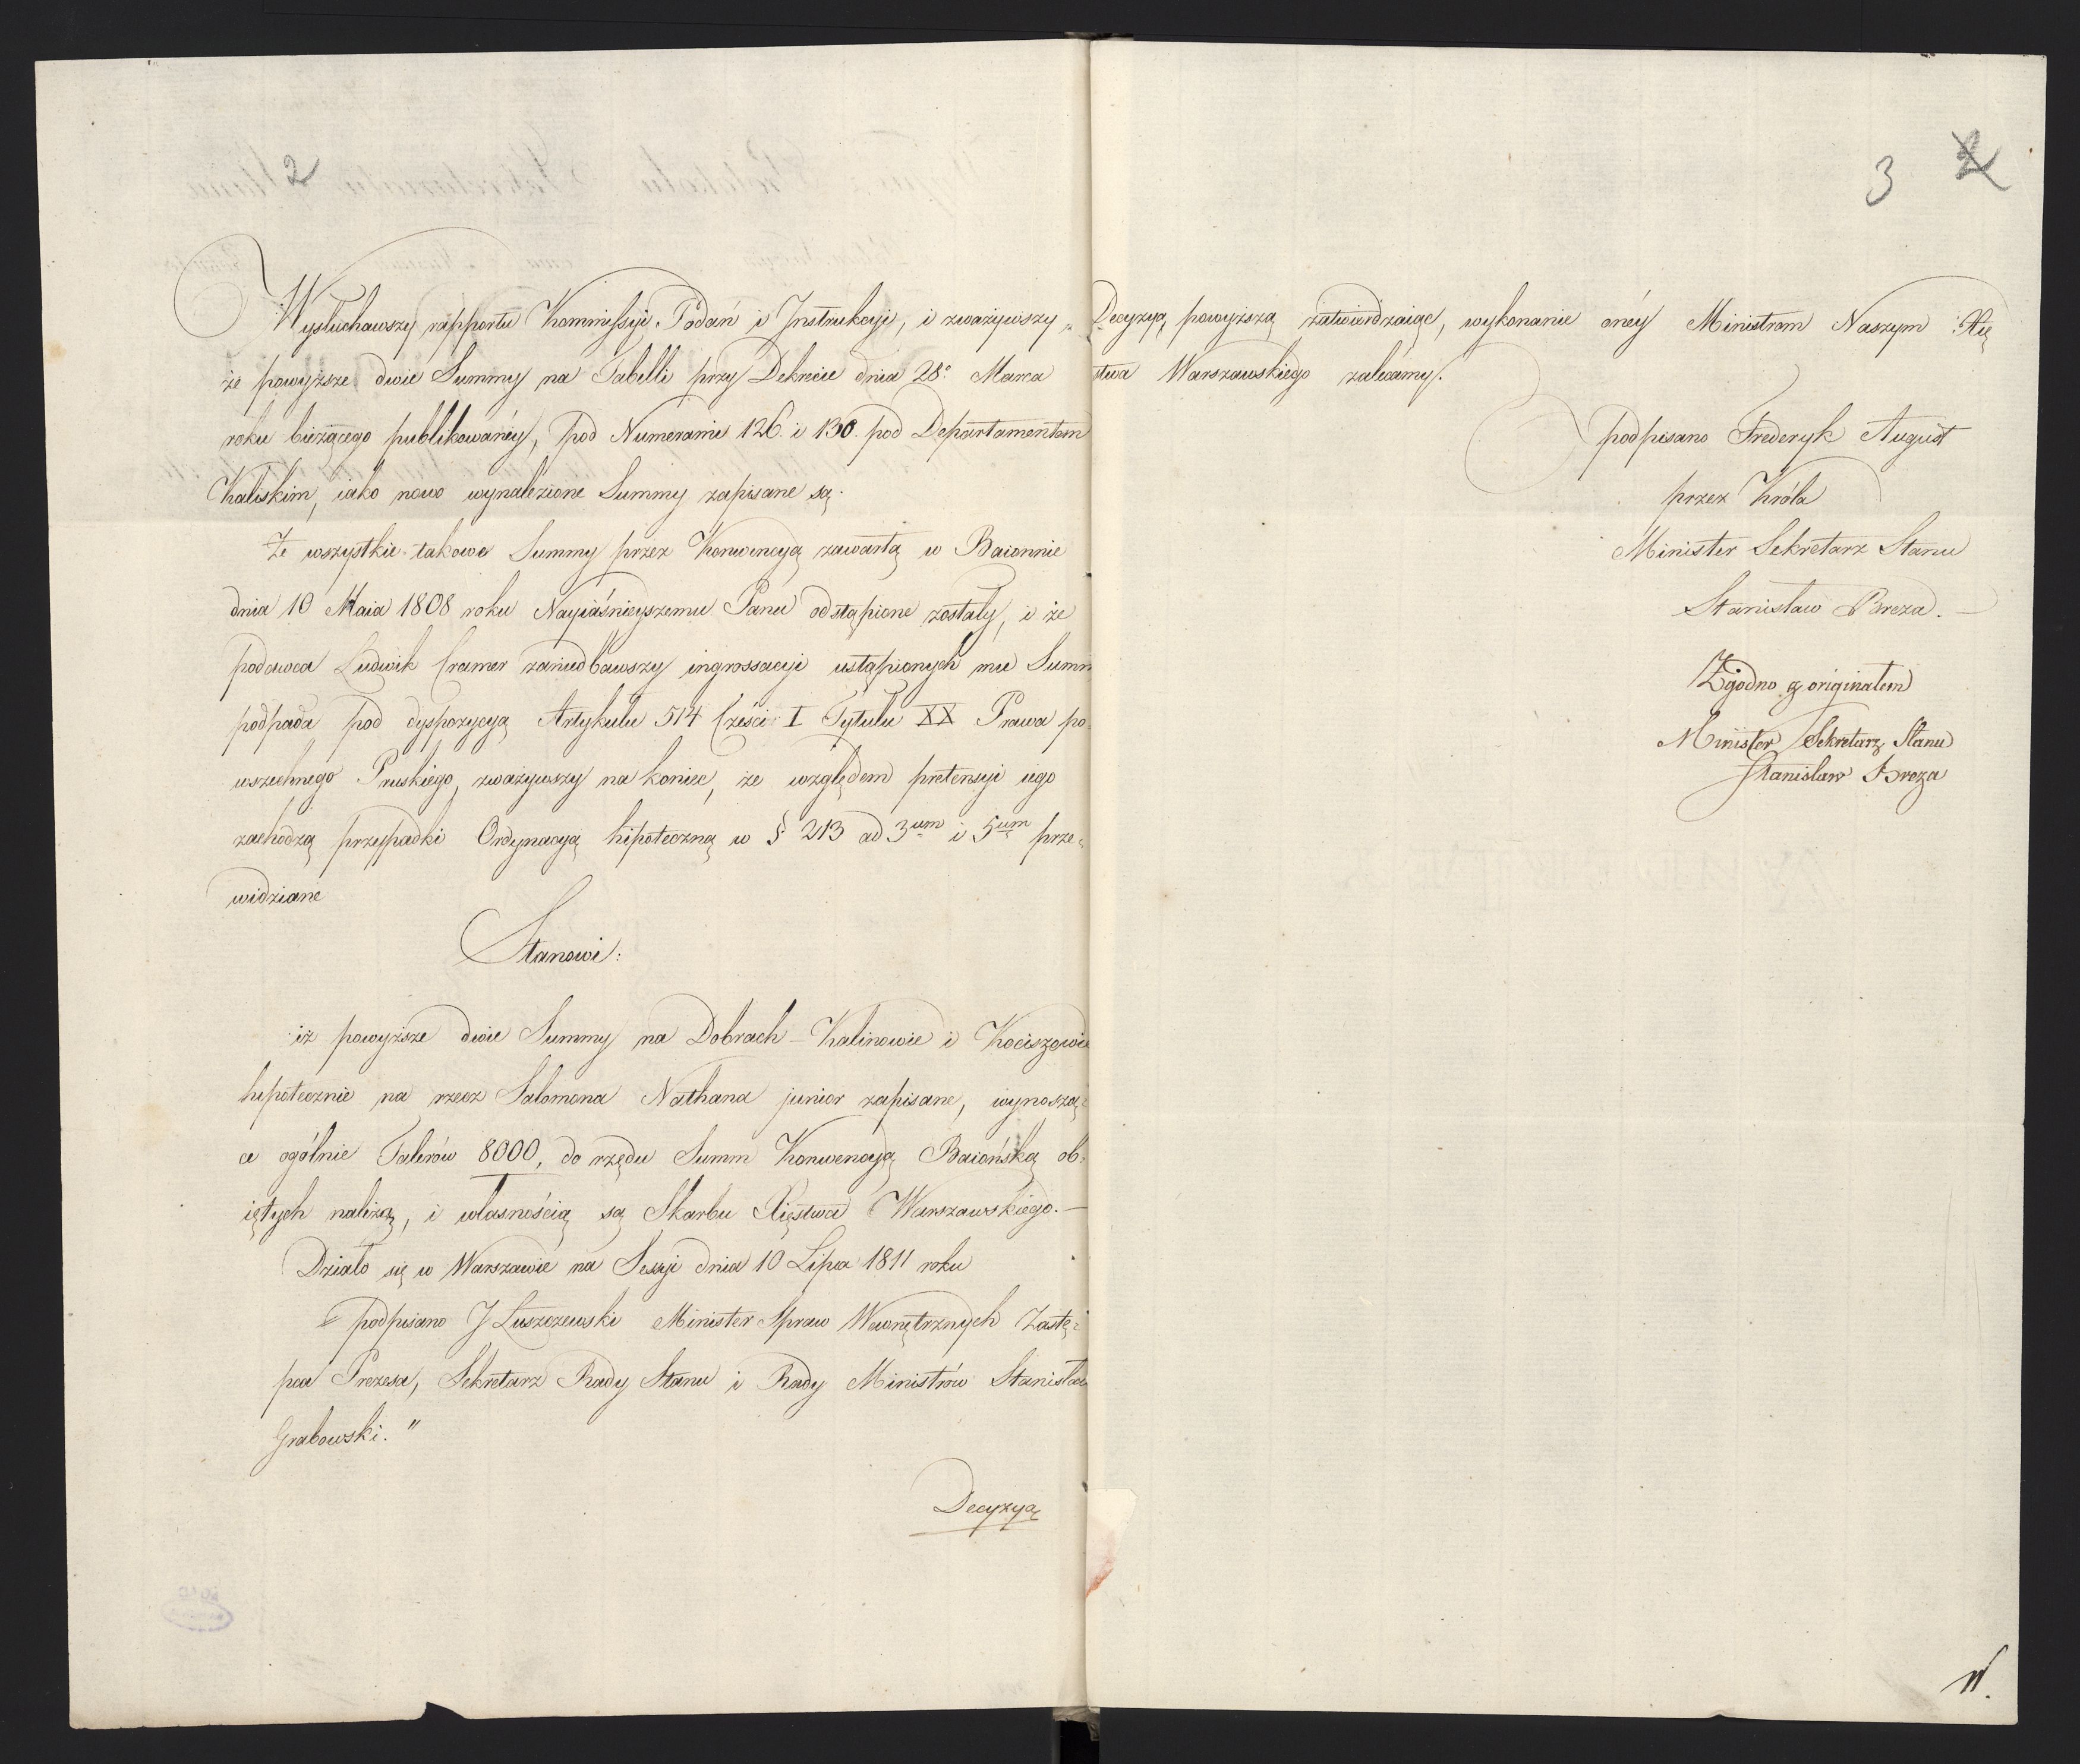 2
Wysłuchawszy rapportu Kommissyi Podań i Jnstrukcyi, i zważywszy,
że powyższe dwie Summy na Tabelli przy Dekrecie dnia 28º Marca
roku bieżącego publikowanéy, pod Numerami 126. i 130. pod Departamentem
Kaliskim, iako nowo wynalezione Summy zapisane są.
Że wszystkie takowe Summy przez Konwencyą zawartą w Baionnie
dnia 10 Maia 1808 roku Nayiaśnieyszemu Panu odstąpione zostały, i że
podawca Ludwik Cramer zaniedbawszy ingrossacyi ustąpionych mu Summ
podpada pod dyspozycyą Artykułu 514 Części I Tytułu XX Prawa po-
wszechnego Pruskiego, zważywszy na koniec, że względem pretensyi iego
zachodzą przypadki Ordynacyą hipoteczną w § 213 ad 3um i 5um prze-
widziane
Stanowi:
iż powyższe dwie Summy na Dobrach Kalinowie i Kociszewie
hipotecznie na rzecz Salomona Nathana junior zapisane, wynoszą-
ce ogólnie Talerów 8000, do rzędu Summ Konwencyą Baiońską ob-
iętych należą, i własnością są Skarbu Xięstwa Warszawskiego. —
Działo się w Warszawie na Sessyi dnia 10 Lipca 1811 roku
podpisano J Łuszczewski Minister Spraw Wewnętrznych Zastę-
pca Prezesa, Sekretarz Rady Stanu i Rady Ministrów Stanisław
Grabowski."
Decyzyą
3 2
Decyzyą powyższą zatwierdzaiąc, wykonanie onéy Ministrom Naszym Xię
stwa Warszawskiego zalecamy.
podpisano Frederyk August
przez Króla
Minister Sekretarz Stanu
Stanisław Breza. —
Zgodno z originałem
Minister Sekretarz Stanu
Stanisław Breza